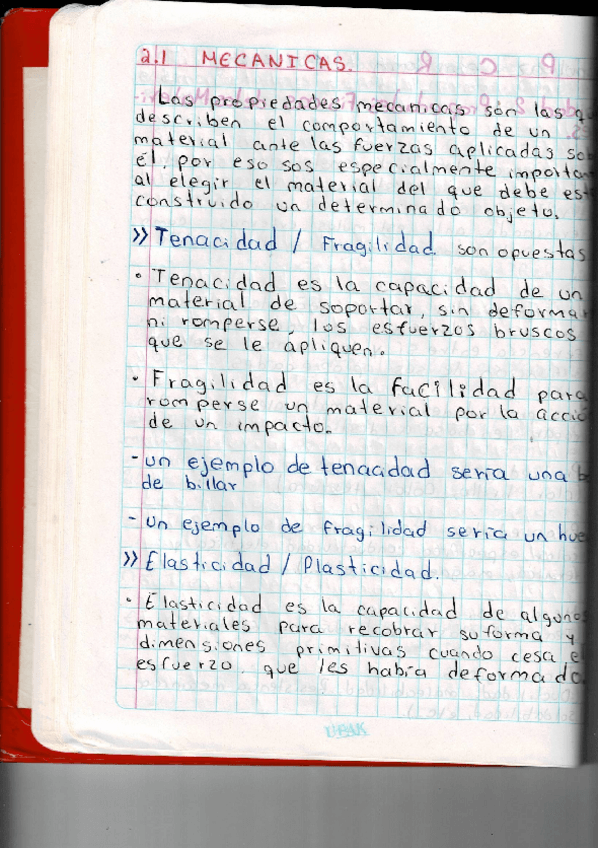 2.1 MECANICAS.
Las propiedades mecanicas son las q
describen el comportamiento de un
material ante las fuerzas aplicadas so
él, por eso sos especialmente importan
al elegir el material del que debe est
construido un determinado objeto.
>> Tenacidad / Fragilidad son opuestas
• Tenacidad es la capacidad de un
material de soportar, sin deformar
ni romperse, los esfuerzos bruscos
que se le apliquen.
• Fragilidad es la facilidad para
romperse un material por la acció
de un impacto.
- un ejemplo de tenacidad sería una b
de billar
- Un ejemplo de fragilidad sería un hue
>> Elasticidad / Plasticidad.
• Elasticidad es la capacidad de alguno
materiales para recobrar su forma y
dimensiones primitivas cuando cesa e
esfuerzo que les había deformado.